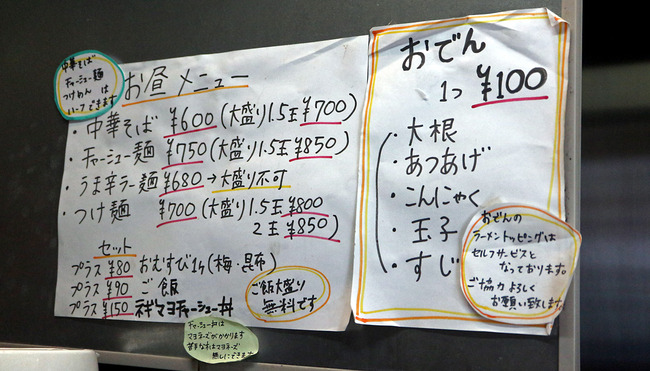 中華そば
チャーシュー麺
つけめん は
ハーフできます
お昼メニュー
・中華そば ¥600(大盛り1.5玉¥700)
・チャーシュー麺 ¥750(大盛り1.5玉¥850)
・うま辛ラー麺 ¥680→大盛り不可
・つけ麺 ¥700(大盛り1.5玉¥800
2玉¥850)
セット
プラス ¥80 おむすび1ヶ(梅・昆布)
プラス ¥90 ご飯
プラス ¥150 ネギマヨチャーシュー丼
ご飯大盛り
無料です
チャーシュー丼は
マヨネーズがかかります
苦手な方はマヨネーズ
無しにできます
おでん
1つ ¥100
・大根
・あつあげ
・こんにゃく
・玉子
・すじ
おでんの
ラーメントッピングは
セルフサービスと
なっております。
ご協力よろしく
お願い致します